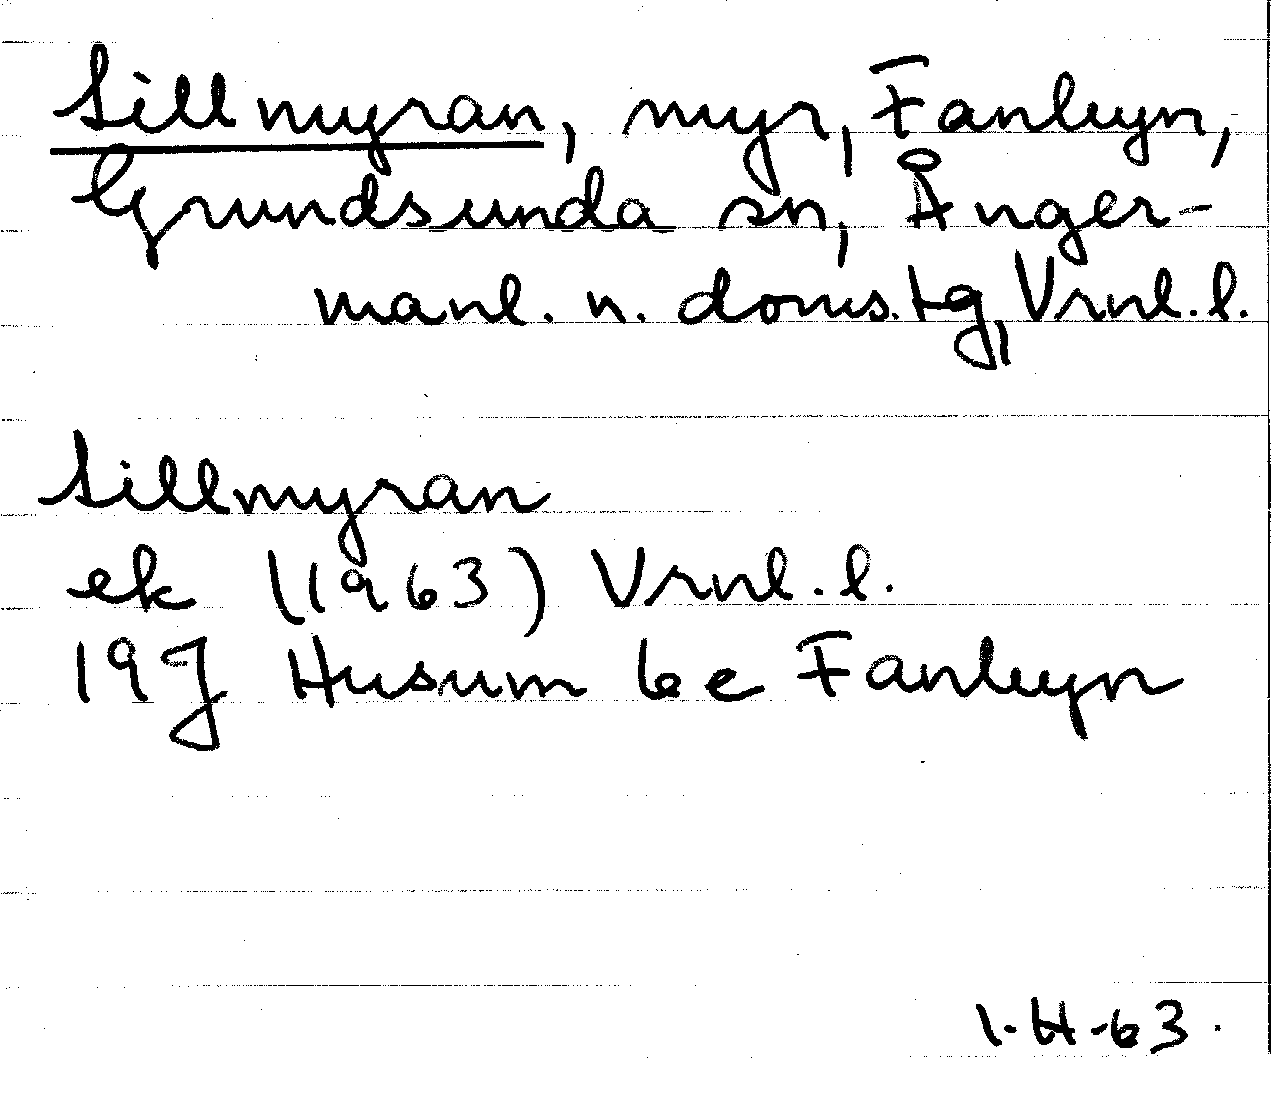 Sillmyran, myr, Fanbyn,
Grundsunda sn, Ånger-
manl. n. doms.tg, Vrnl. l.
Sillmyran
ek (1963) Vrnl. l.
19J Husum 6 e Fanbyn
I.H-63.